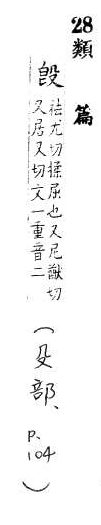 28類篇
㲃
祛尤切揉屈也又尼猷切
又居又切文一重音二
（殳部、p.104）